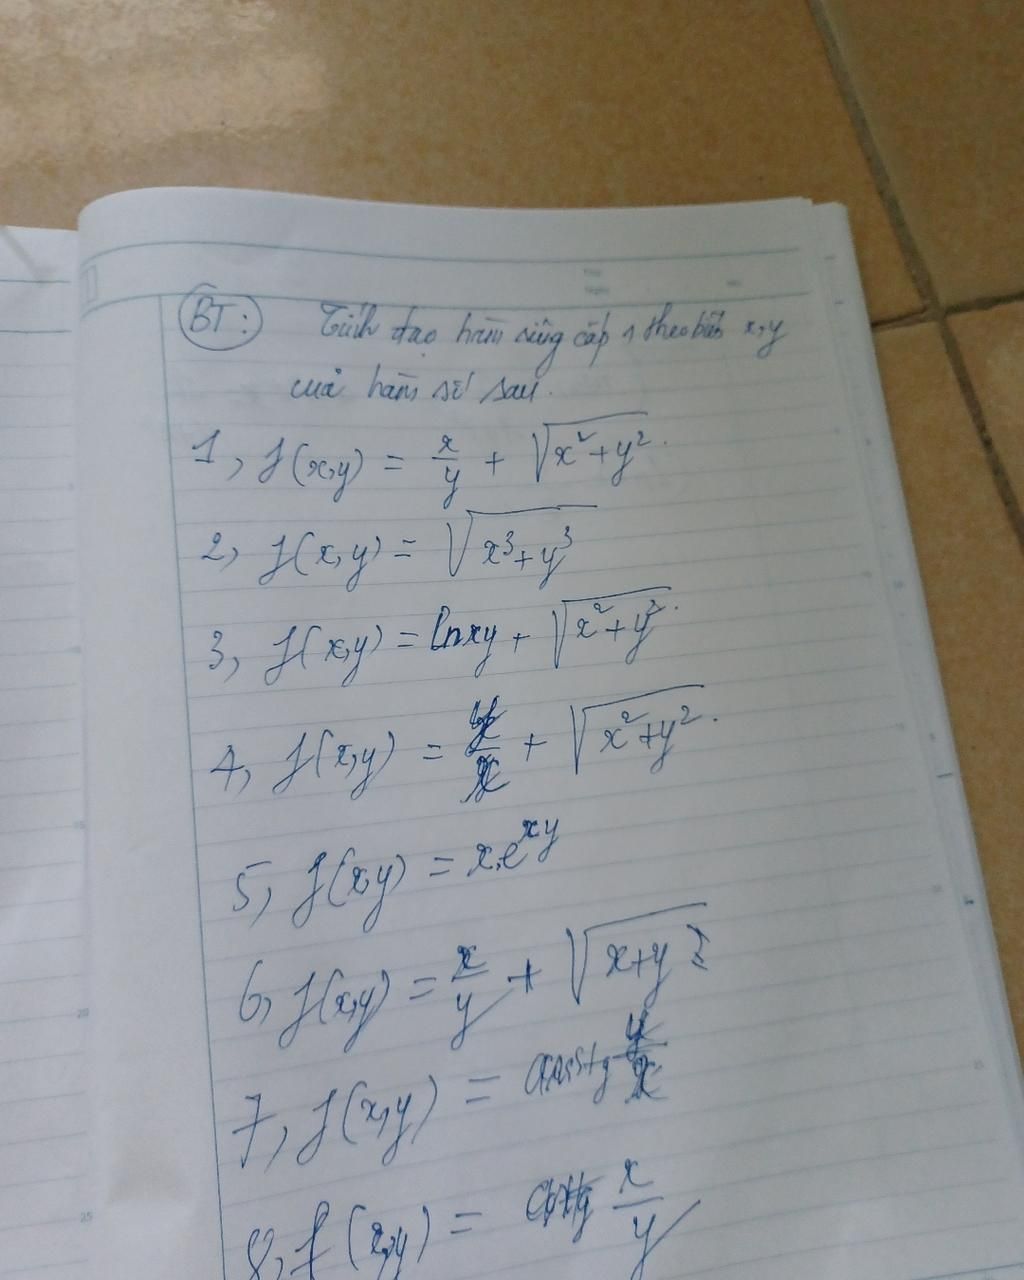 BT: Tính đạo hàm riêng cấp 1 theo biến x,y
của hàm số sau.
1, f(x,y) = x/y + √(x²+y²).
2, f(x,y) = √(x³+y³)
3, f(x,y) = lnxy + √(x²+y²).
4, f(x,y) = y/x + √(x²+y²).
5, f(x,y) = x.e^xy
6, f(x,y) = x/y + √(x+y²)
7, f(x,y) = y/x
8, f(x,y) = x/y